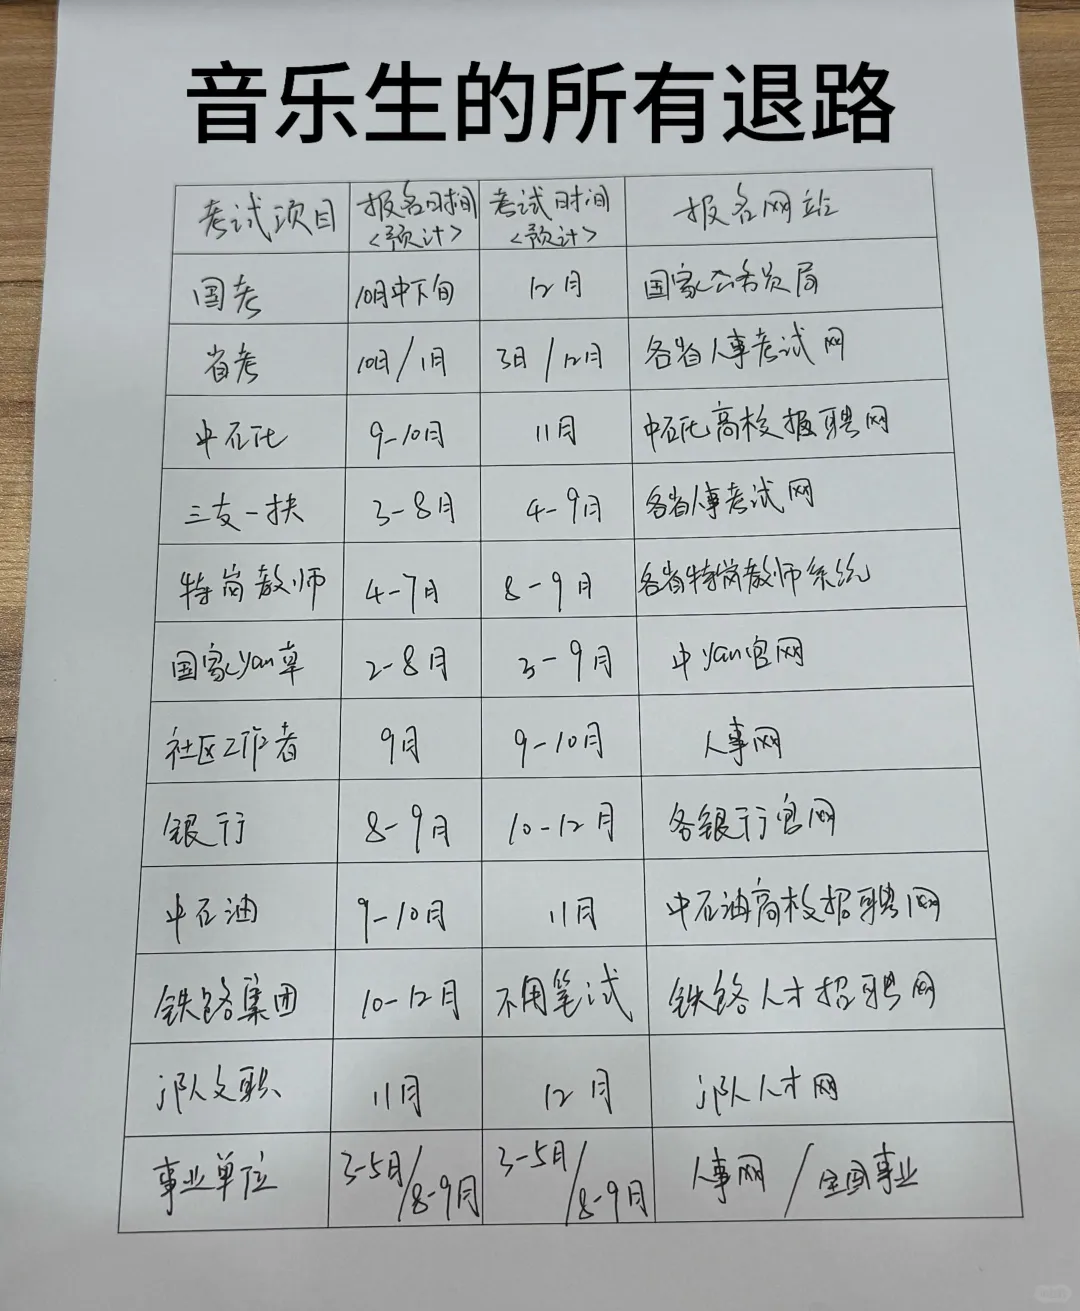 音乐生的所有退路
考试项目 报名时间 考试时间 报名网站
<预计> <预计>
国考 10月中下旬 12月 国家公务员局
省考 10日/1月 3日/12月 各省人事考试网
中石化 9-10月 11月 中石化高校报聘网
三支一扶 3-8月 4-9月 各省人事考试网
特岗教师 4-7月 8-9月 各省特岗教师系统
国家yan草 2-8月 3-9月 中yan官网
社区工作者 9月 9-10月 人事网
银行 8-9月 10-12月 各银行官网
中石油 9-10月 11月 中石油高校招聘网
铁路集团 10-12月 不用笔试 铁路人才招聘网
部队文职 11月 12月 部队人才网
事业单位 3-5月/8-9月 3-5月/8-9月 人事网/全国事业